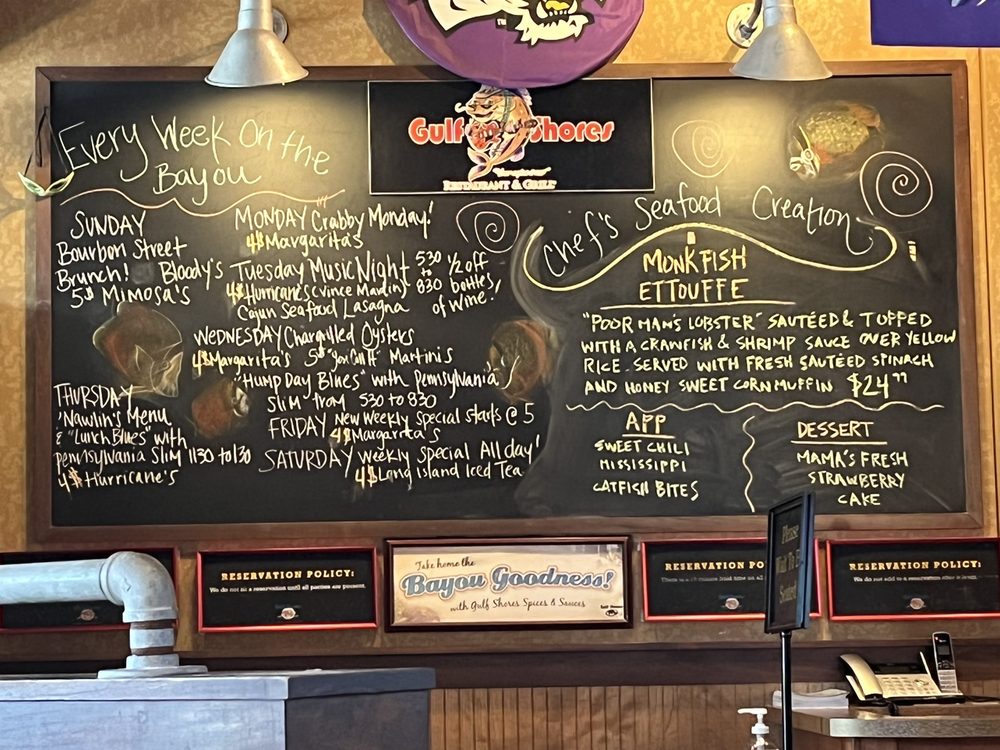 Gulf Shores
RESTAURANT & GRILL
Every Week On the
Bayou
SUNDAY
Bourbon Street
Brunch! Bloody's
5$ Mimosa's
MONDAY Crabby Monday!
4$ Margarita's
Tuesday Music Night
4$ Hurricane's (Vince Martin)
Cajun Seafood Lasagna
530
to
830
1/2 off
bottles
of wine!
WEDNESDAY Chargrilled Oysters
4$ Margarita's 5$ "You Call It" Martinis
"Hump Day Blues" with Pennsylvania
Slim from 530 to 830
THURSDAY
'Nawlin's Menu
& "Lunch Blues" with
Pennsylvania Slim 1130 to 130
4$ Hurricane's
FRIDAY New Weekly Special starts @ 5
4$ Margarita's
SATURDAY Weekly Special All day!
4$ Long Island Iced Tea
Chef's Seafood Creation
MONKFISH
ETTOUFFE
"POOR MAN'S LOBSTER" SAUTÉED & TOPPED
WITH A CRAWFISH & SHRIMP SAUCE OVER YELLOW
RICE. SERVED WITH FRESH SAUTÉED SPINACH
AND HONEY SWEET CORN MUFFIN $24.99
APP
SWEET CHILI
MISSISSIPPI
CATFISH BITES
DESSERT
MAMA'S FRESH
STRAWBERRY
CAKE
RESERVATION POLICY:
We do not seat a reservation until all parties are present.
Take home the
Bayou Goodness!
with Gulf Shores Spices & Sauces
RESERVATION POLICY:
RESERVATION POLICY:
Please
Wait To Be
Seated